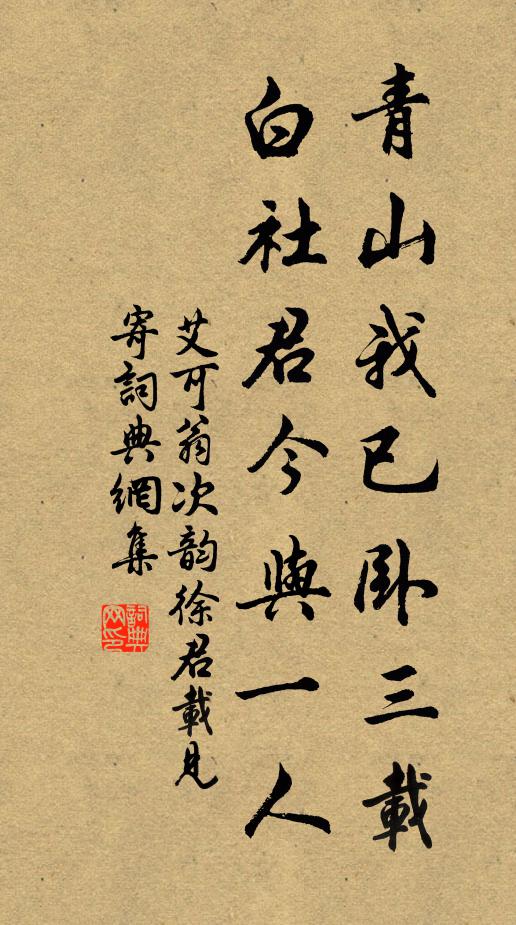 青山我已卧三載
白社君今與一人
艾可翁次韵徐君載見
寄詞典網集
詞典網印